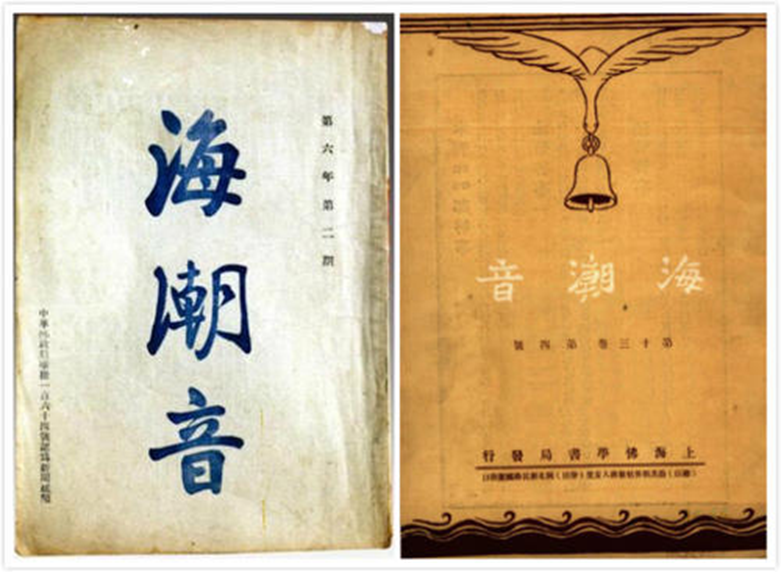 第六年第二期
海潮音
中華郵政 一百六十四號認爲新聞紙類
海潮音
第十三卷第四號
上海佛學書局發行